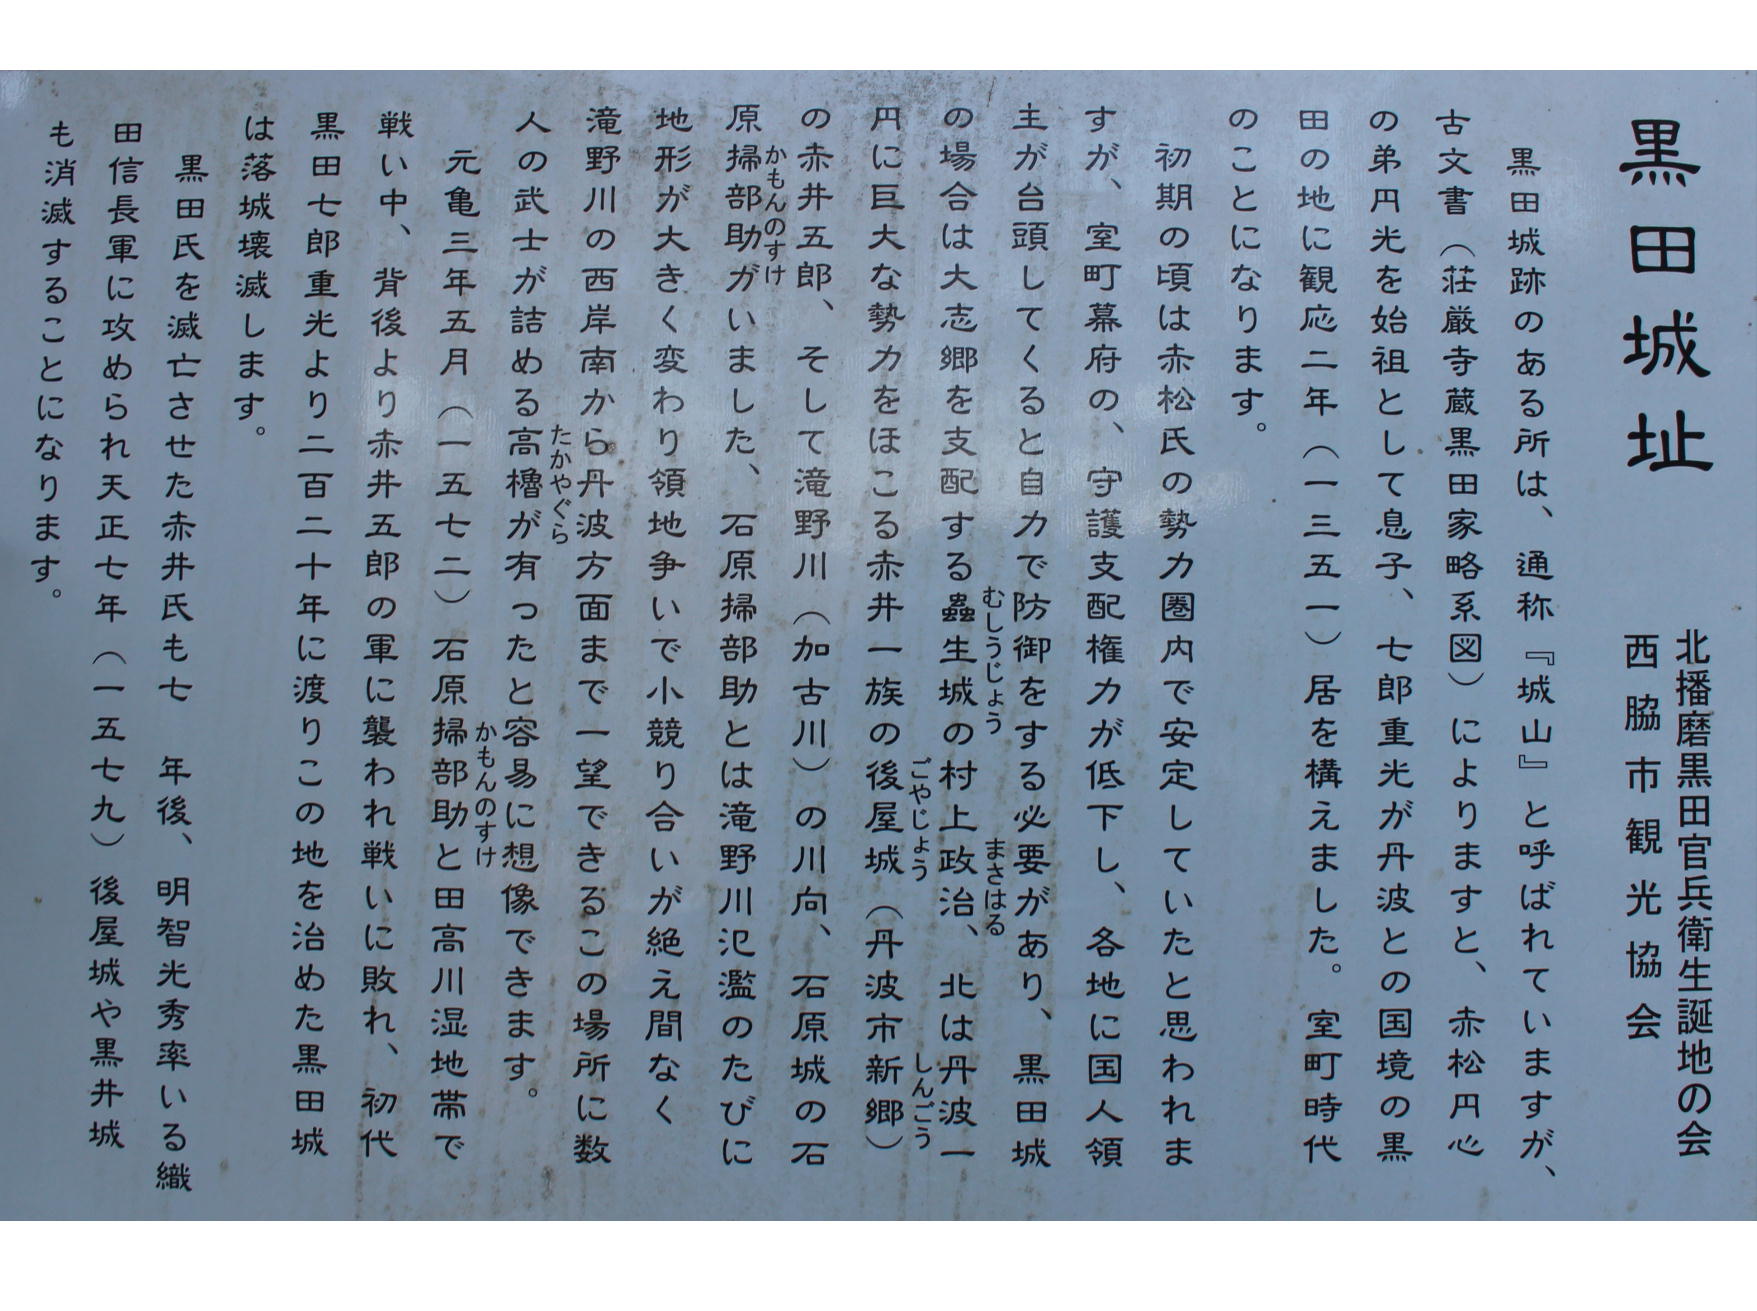 黒田城址
北播磨黒田官兵衛生誕地の会
西脇市観光協会
黒田城跡のある所は、通称『城山』と呼ばれていますが、
古文書（荘厳寺蔵黒田家略系図）によりますと、赤松円心
の弟円光を始祖として息子、七郎重光が丹波との国境の黒
田の地に観応二年（一三五一）居を構えました。室町時代
のことになります。
初期の頃は赤松氏の勢力圏内で安定していたと思われま
すが、室町幕府の、守護支配権力が低下し、各地に国人領
主が台頭してくると自力で防御をする必要があり、黒田城
むしうじょう
まさはる
の場合は大志郷を支配する蟲生城の村上政治、北は丹波一
ごやじょう
しんごう
円に巨大な勢力をほこる赤井一族の後屋城（丹波市新郷）
の赤井五郎、そして滝野川（加古川）の川向、石原城の石
かもんのすけ
原掃部助がいました、石原掃部助とは滝野川氾濫のたびに
地形が大きく変わり領地争いで小競り合いが絶え間なく
滝野川の西岸南から丹波方面まで一望できるこの場所に数
たかやぐら
人の武士が詰める高櫓が有ったと容易に想像できます。
かもんのすけ
元亀三年五月（一五七二）石原掃部助と田高川湿地帯で
戦い中、背後より赤井五郎の軍に襲われ戦いに敗れ、初代
黒田七郎重光より二百二十年に渡りこの地を治めた黒田城
は落城壊滅します。
黒田氏を滅亡させた赤井氏も七 年後、明智光秀率いる織
田信長軍に攻められ天正七年（一五七九）後屋城や黒井城
も消滅することになります。